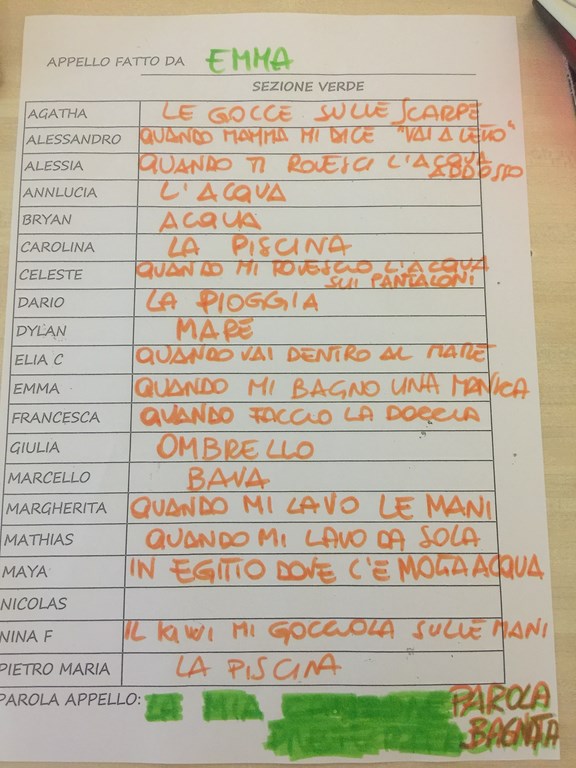 APPELLO FATTO DA EMMA
SEZIONE VERDE
AGATHA LE GOCCE SULLE SCARPE
ALESSANDRO QUANDO MAMMA MI DICE "VAI A LETTO"
ALESSIA QUANDO TI ROVESCI L'ACQUA ADDOSSO
ANNLUCIA L'ACQUA
BRYAN ACQUA
CAROLINA LA PISCINA
CELESTE QUANDO MI ROVESCIO L'ACQUA SUI PANTALONI
DARIO LA PIOGGIA
DYLAN MARE
ELIA C QUANDO VAI DENTRO AL MARE
EMMA QUANDO MI BAGNO UNA MANICA
FRANCESCA QUANDO FACCIO LA DOCCIA
GIULIA OMBRELLO
MARCELLO BAVA
MARGHERITA QUANDO MI LAVO LE MANI
MATHIAS QUANDO MI LAVO DA SOLA
MAYA IN EGITTO DOVE C'È MOLTA ACQUA
NICOLAS
NINA F IL KIWI MI GOCCIOLA SULLE MANI
PIETRO MARIA LA PISCINA
PAROLA APPELLO: LA MIA PAROLA
BAGNATA